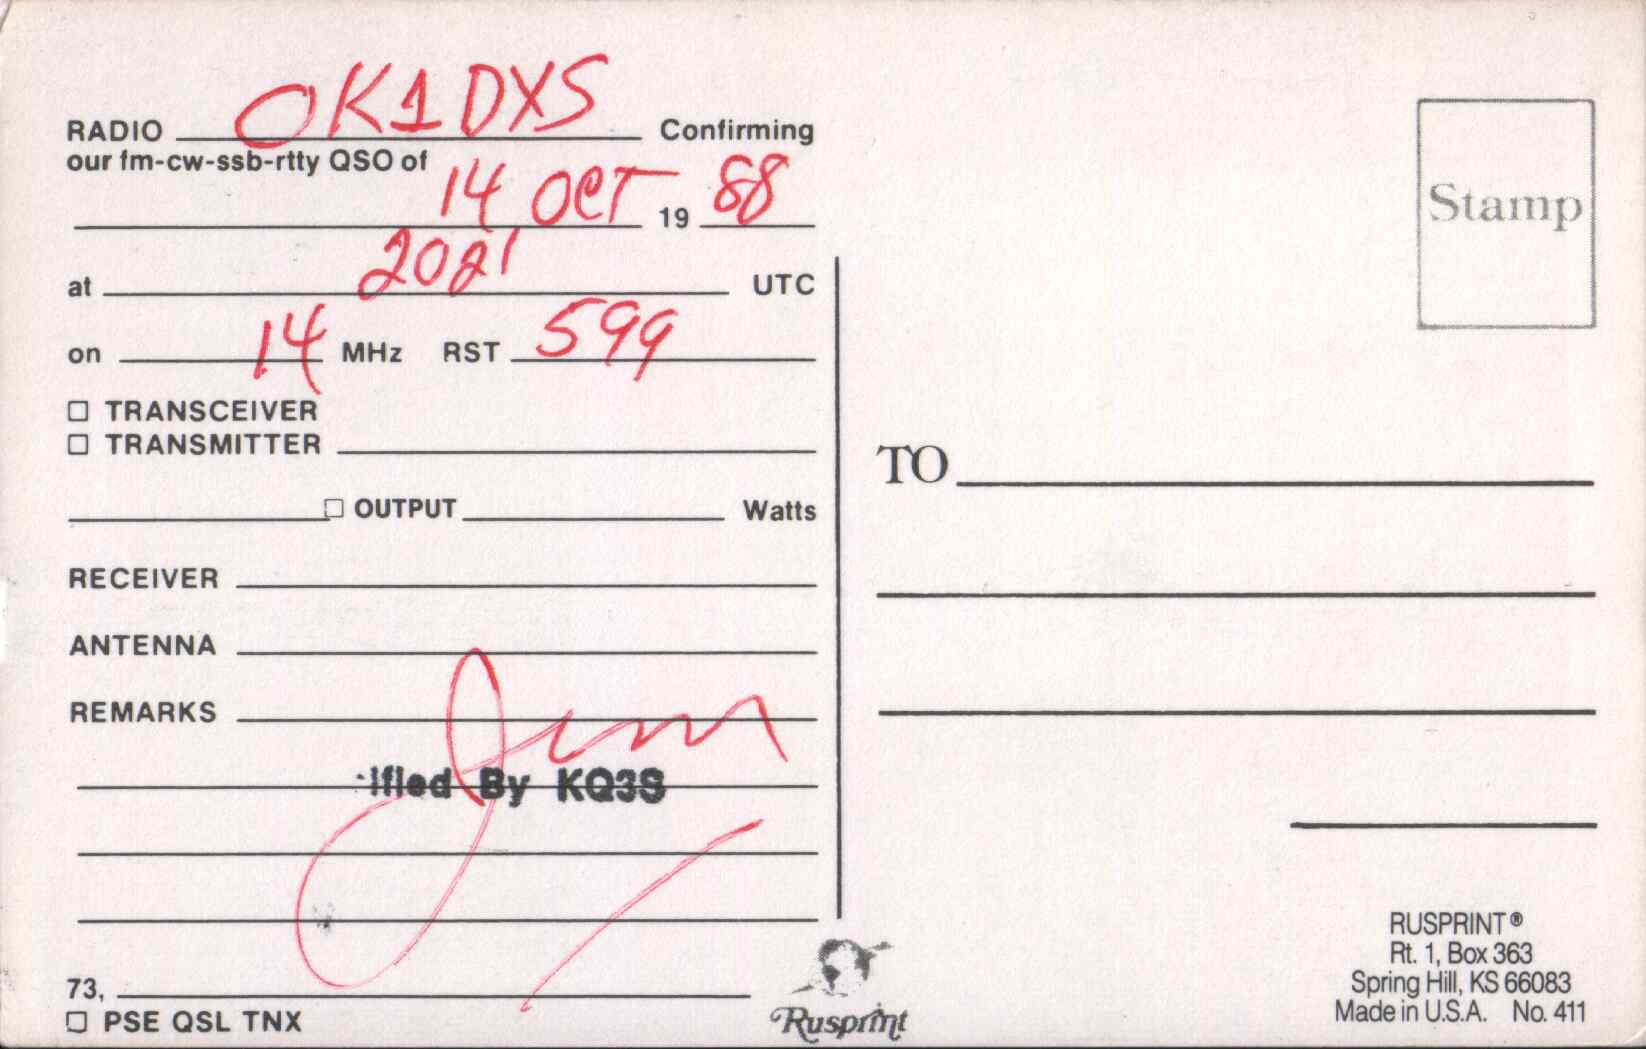 RADIO OK1DXS Confirming
our fm-cw-ssb-rtty QSO of
14 OCT 19 88
at 2021 UTC
on 14 MHz RST 599
TRANSCEIVER
TRANSMITTER
OUTPUT Watts
RECEIVER
ANTENNA
REMARKS
Jim
ified By KQ3S
73,
PSE QSL TNX
Rusprint
Stamp
TO
RUSPRINT®
Rt. 1, Box 363
Spring Hill, KS 66083
Made in U.S.A. No. 411